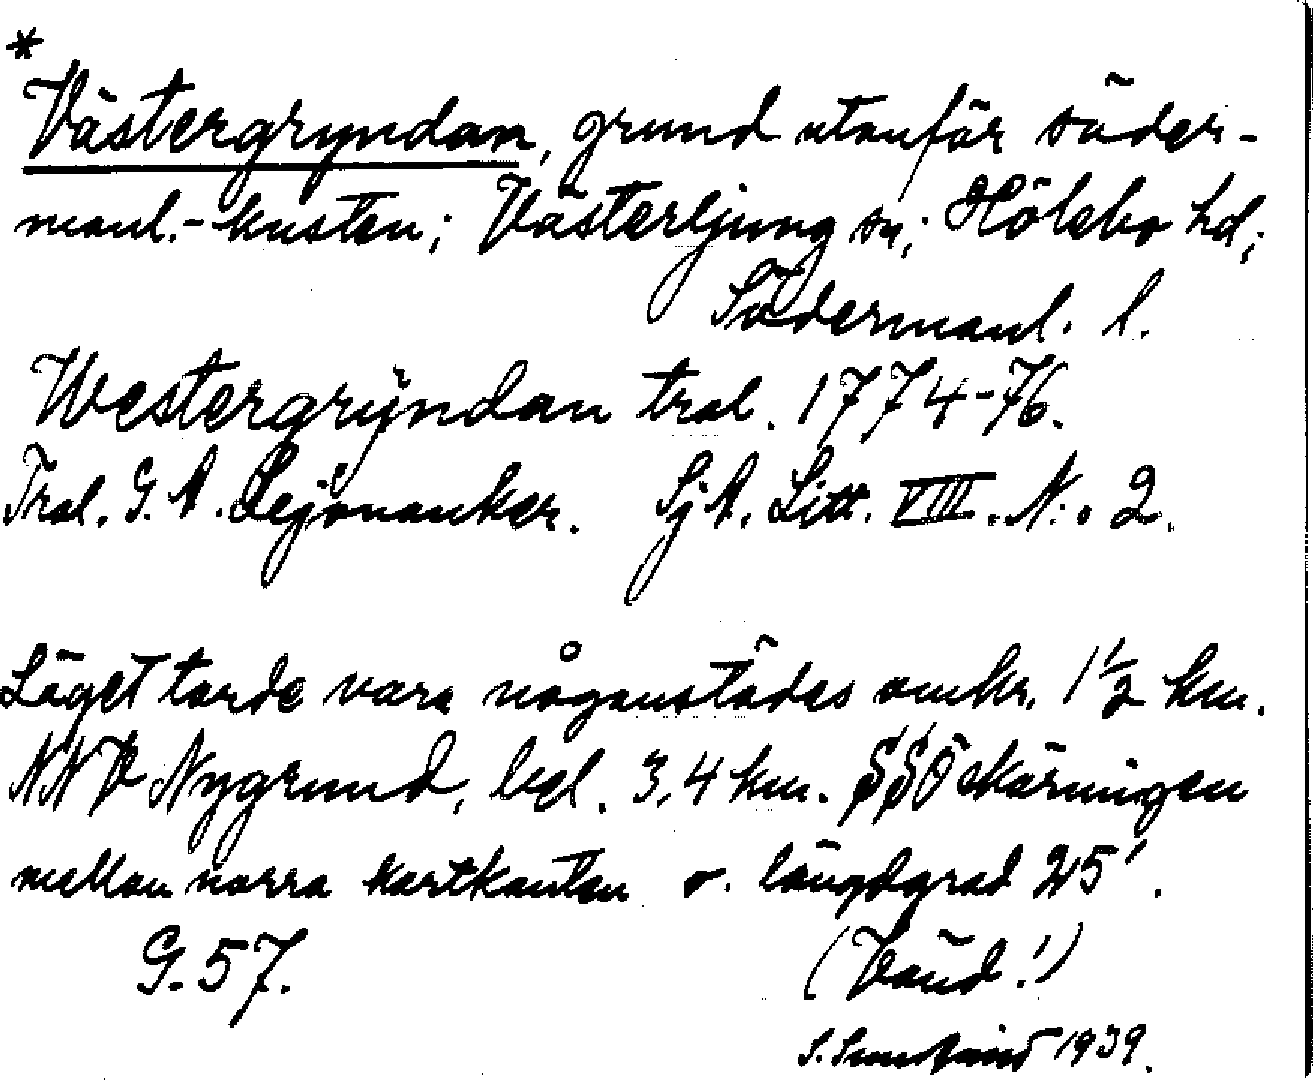 *
Västergryndan, grund utanför söder-
manl.-kusten; Västerljung sn; Hölebo hd;
Södermanl. l.
Westergrÿndan tral. 1774-76.
Tral. G. A. Lejonanker. SjA. Litt. VIII. N:o 2.
Läget torde vara någonstädes omkr. 1 1/2 km.
NNV Nygrund, bel. 3,4 km. SSÖ skärningen
mellan norra kartkanten o. längdgrad 25'.
G. 57. (Vänd!)
S. 1939.